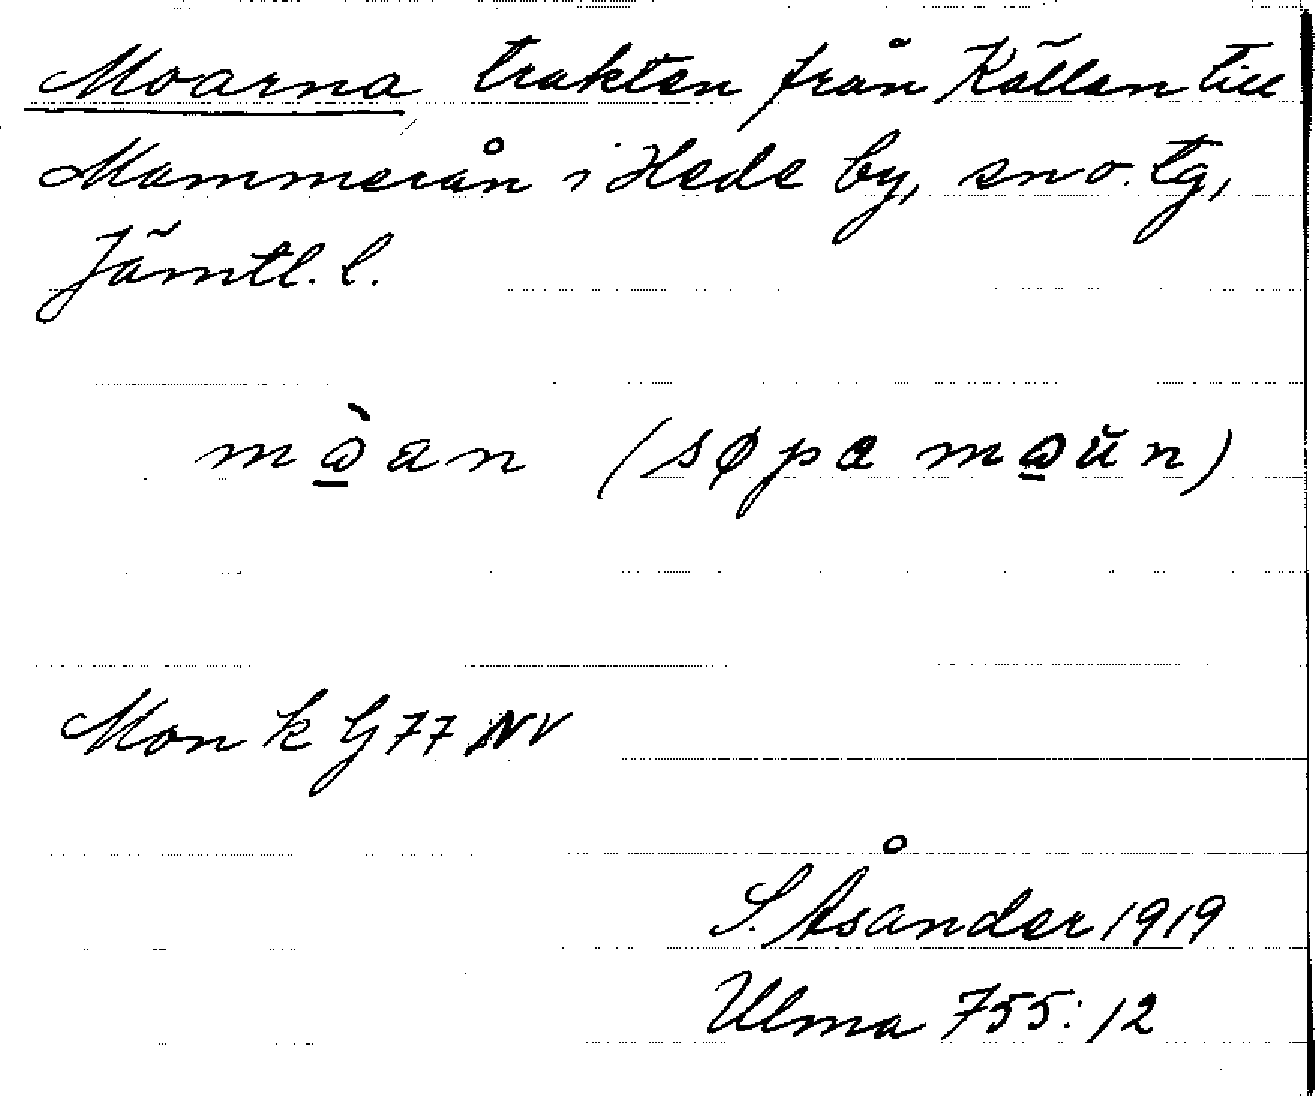 Moarna trakten från Källan till
Mammerån i Hede by, sn o. tg,
Jämtl. l.
mə̱̀an (søpa mə̱ŭn)
Mon k G 77 NV
S. Åsander 1919
Ulma 755:12